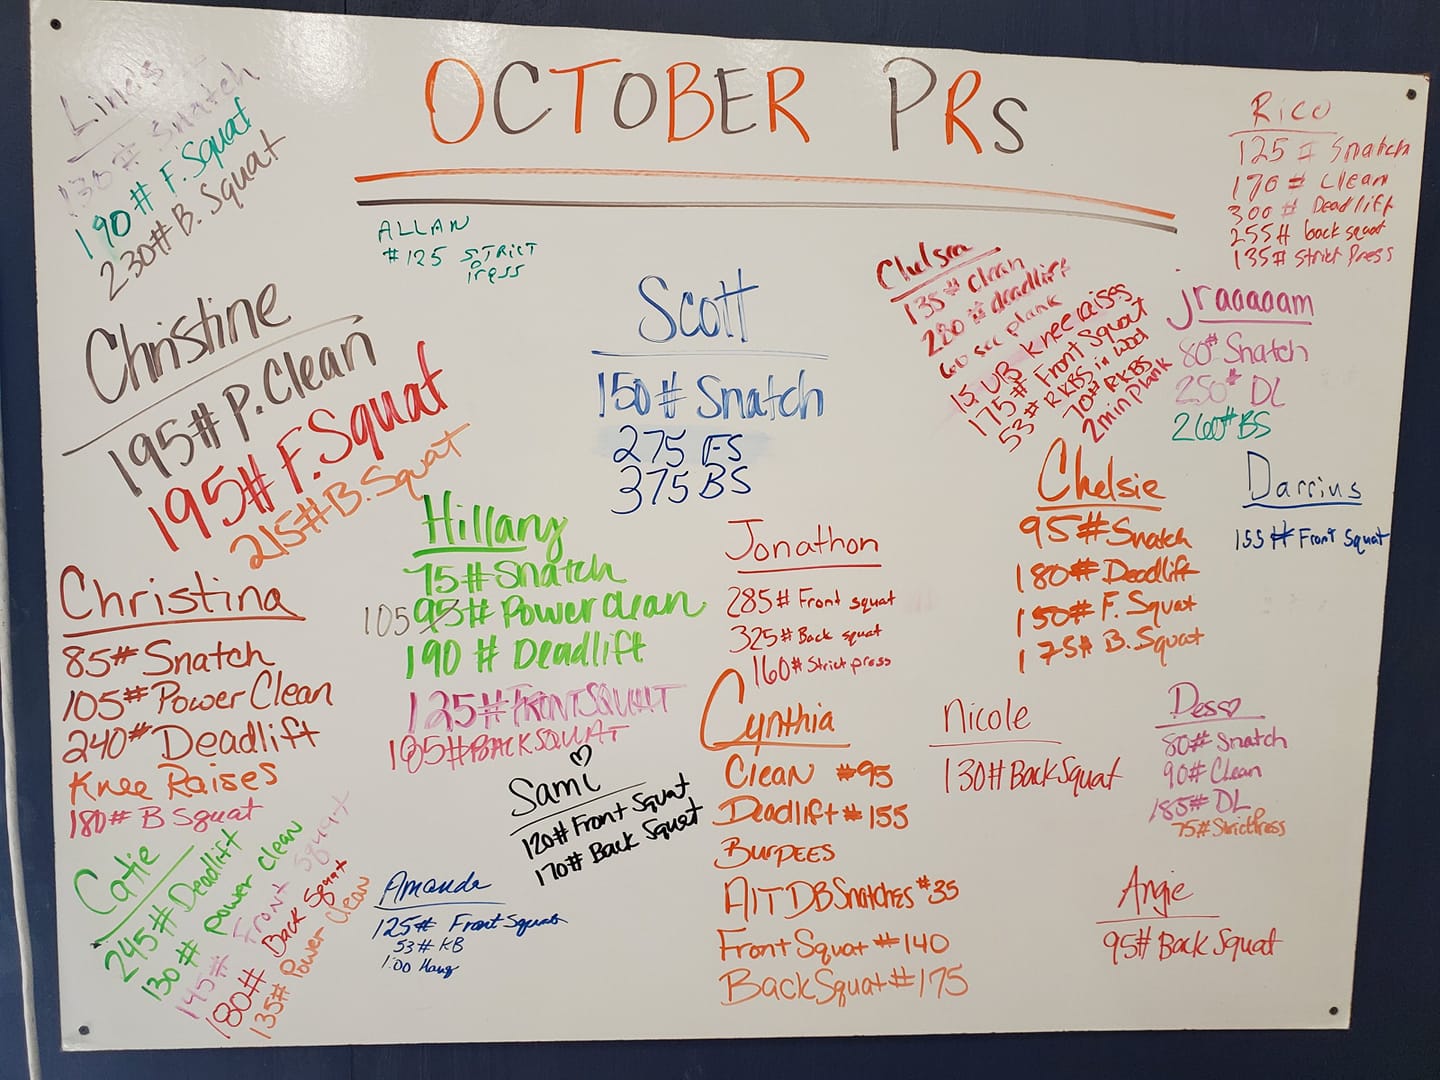 OCTOBER PRS
Linds
130# Snatch
190# F. Squat
230# B. Squat
ALLAN
#125 STRICT
Press
Rico
125# Snatch
170# Clean
300# Deadlift
255# back squat
135# Strict Press
Christine
195# P. Clean
195# F. Squat
215# B. Squat
Scott
150# Snatch
275 FS
375 BS
Chelsea
135# Clean
280# deadlift
60 sec plank
15 UB Knee raises
175# Front Squat
53# RKBS in wod
70# RKBS
2 min plank
jraaaaam
80# Snatch
250# DL
260# BS
Darrius
155# Front Squat
Chelsie
95# Snatch
180# Deadlift
150# F. Squat
175# B. Squat
Hillary
75# Snatch
105 95# Power clean
190# Deadlift
125# FRONT SQUAT
185# BACK SQUAT
Jonathon
285# Front squat
325# Back squat
160# Strict press
Christina
85# Snatch
105# Power Clean
240# Deadlift
Knee Raises
180# B Squat
Sami
120# Front Squat
170# Back Squat
Cynthia
Clean #95
Deadlift #155
Burpees
Alt DB Snatches #35
Front Squat #140
Back Squat #175
Nicole
130# Back Squat
Dess
80# Snatch
90# Clean
185# DL
75# Strict Press
Catie
245# Deadlift
130# Power Clean
145# Front Squat
180# Back Squat
135# Power Clean
Amanda
125# Front Squat
53# KB
1:00 Hang
Angie
95# Back Squat